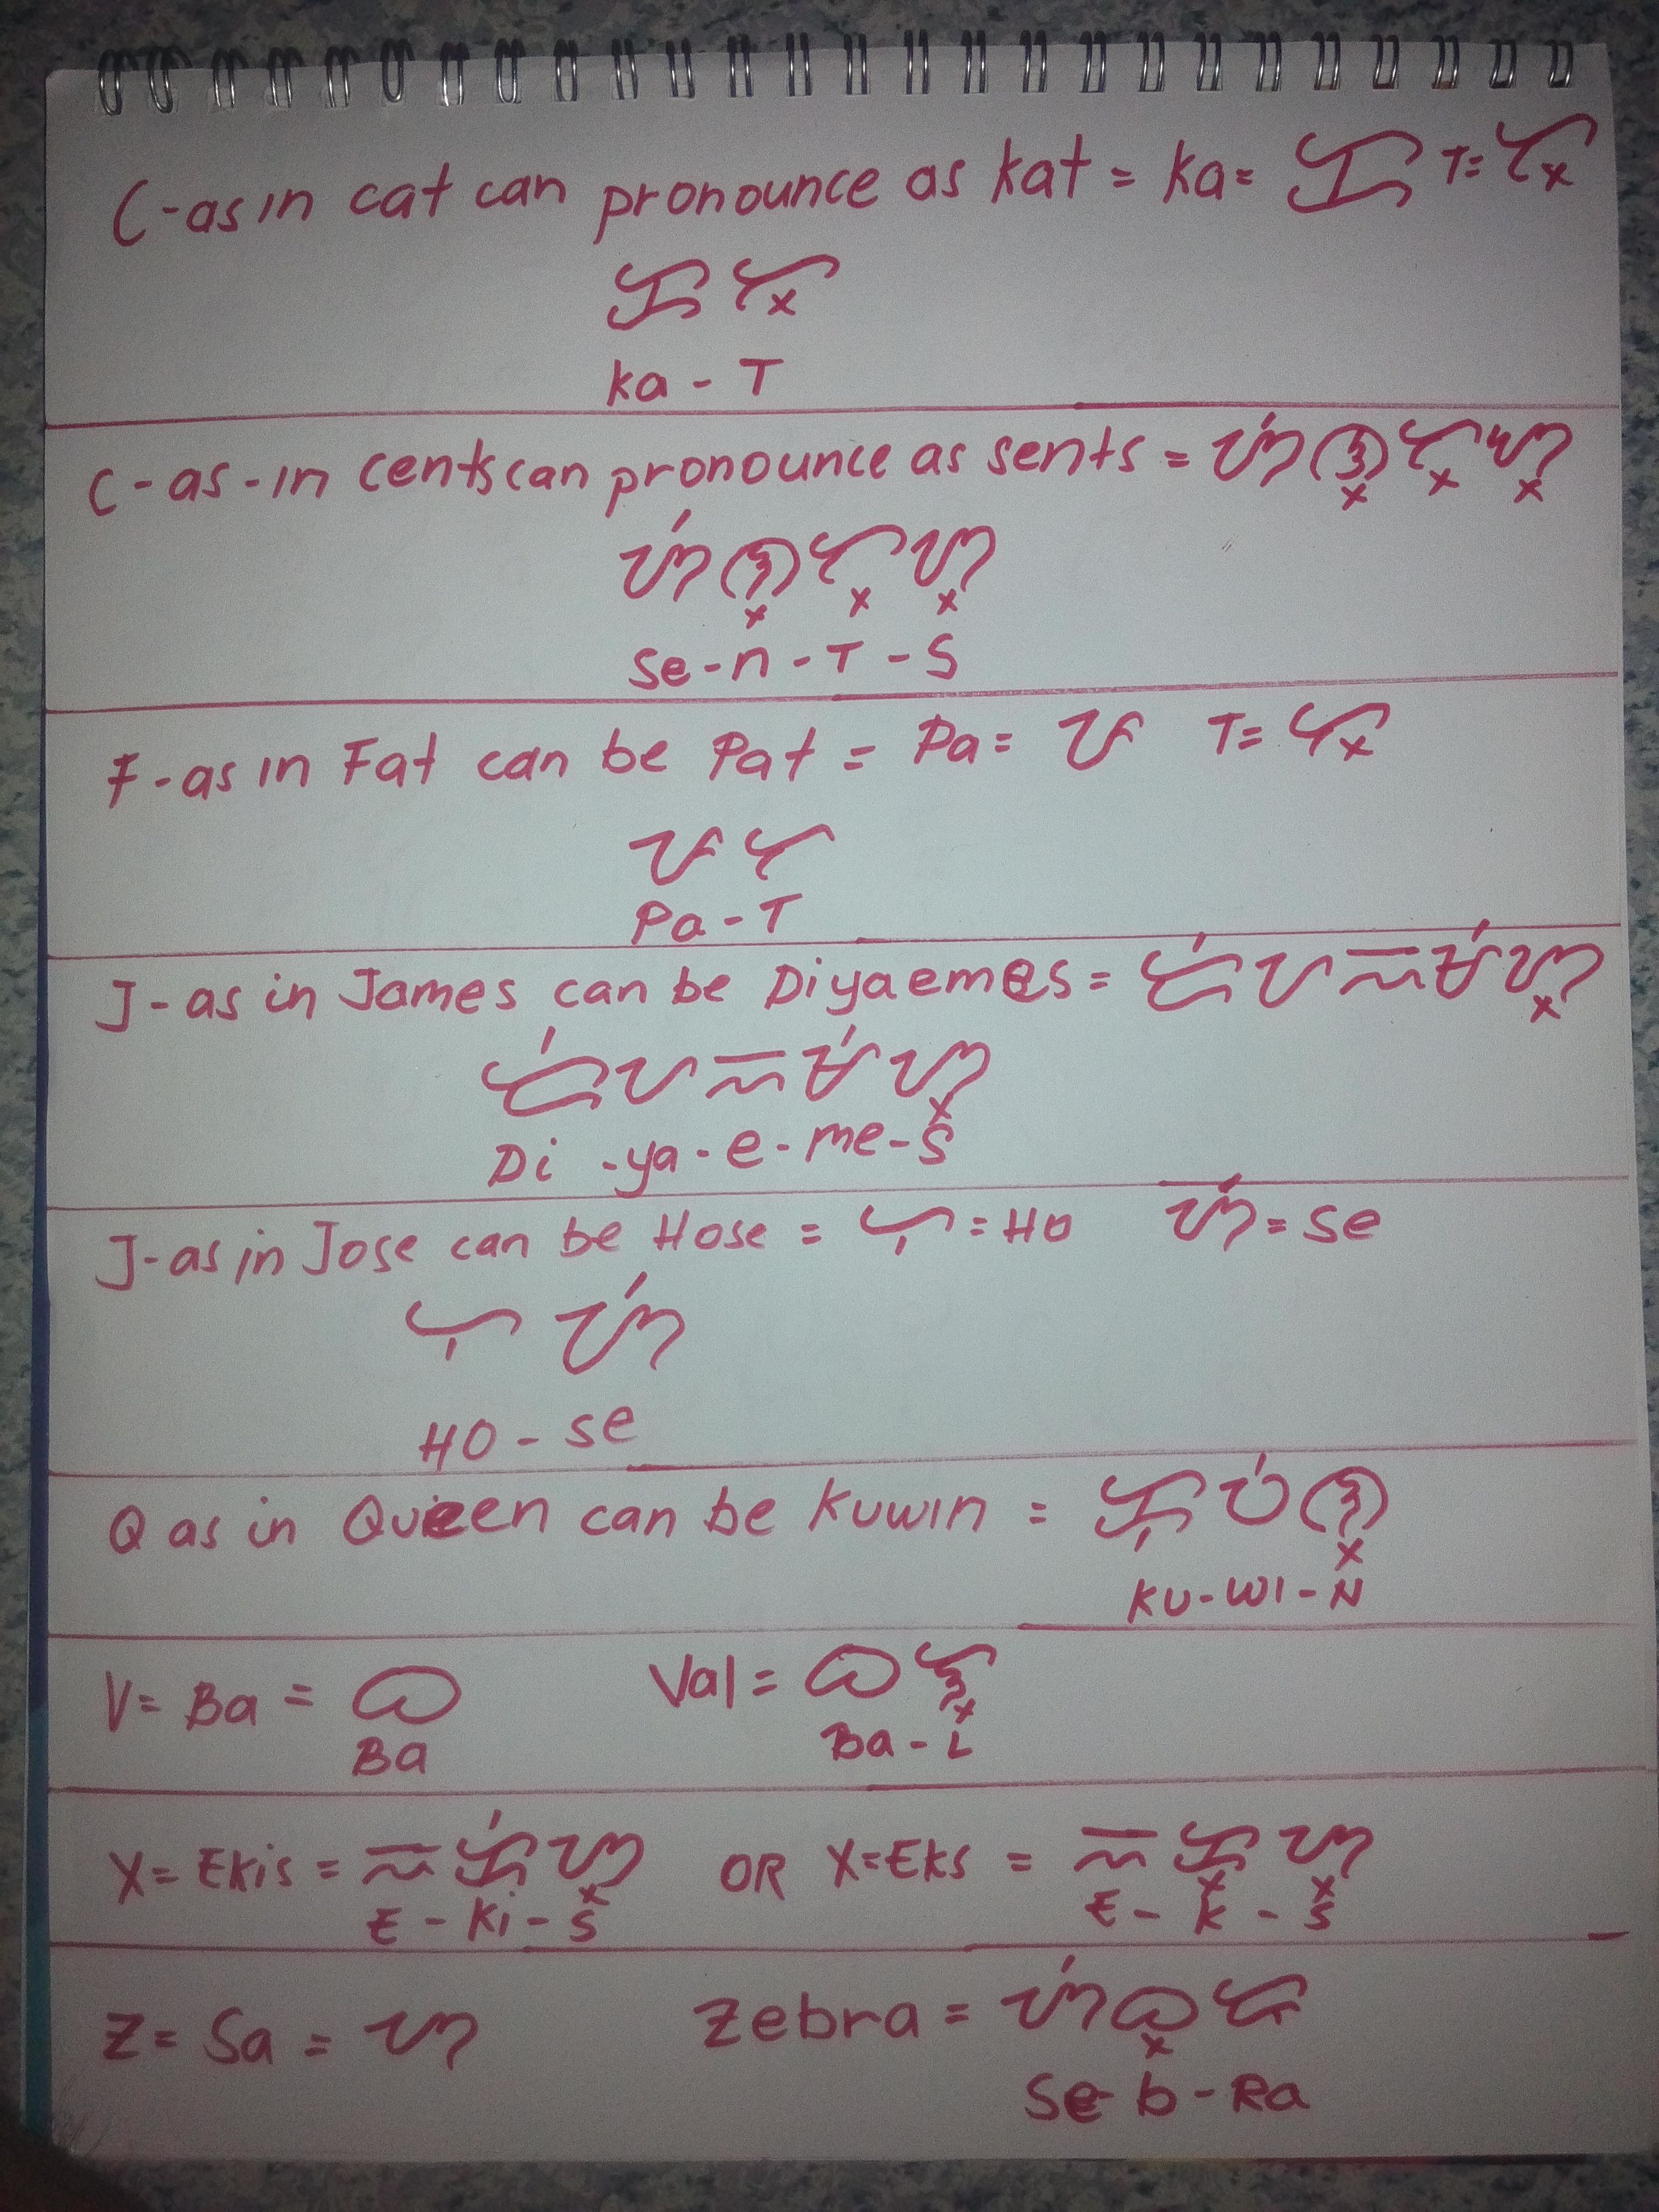 C-as in cat can pronounce as kat = ka= ᜃ T= ᜆ᜔
ᜃᜆ᜔
ka - T
C-as-in cents can pronounce as sents = ᜐᜒᜈ᜔ᜆ᜔ᜐ᜔
ᜐᜒᜈ᜔ᜆ᜔ᜐ᜔
Se-n-T-S
F-as in Fat can be Pat = Pa= ᜉ T= ᜆ᜔
ᜉᜆ
Pa-T
J-as in James can be Diyaemes = ᜇᜒᜌᜁᜋᜒᜐ᜔
ᜇᜒᜌᜁᜋᜒᜐ᜔
Di -ya-e-me-s
J-as in Jose can be Hose = ᜑᜓ = HO ᜐᜒ = se
ᜑᜓ ᜐᜒ
HO - se
Q as in Queen can be Kuwin = ᜃᜓᜏᜒᜈ᜔
KU-WI-N
V= Ba = ᜊ Val= ᜊᜎ᜔
Ba Ba-L
X= EKis = ᜁᜃᜒᜐ᜔ OR X=EKS = ᜁᜃ᜔ᜐ᜔
E - Ki - S E - K - S
Z= Sa = ᜐ Zebra = ᜐᜒᜊ᜔ᜇ
Se-b-Ra